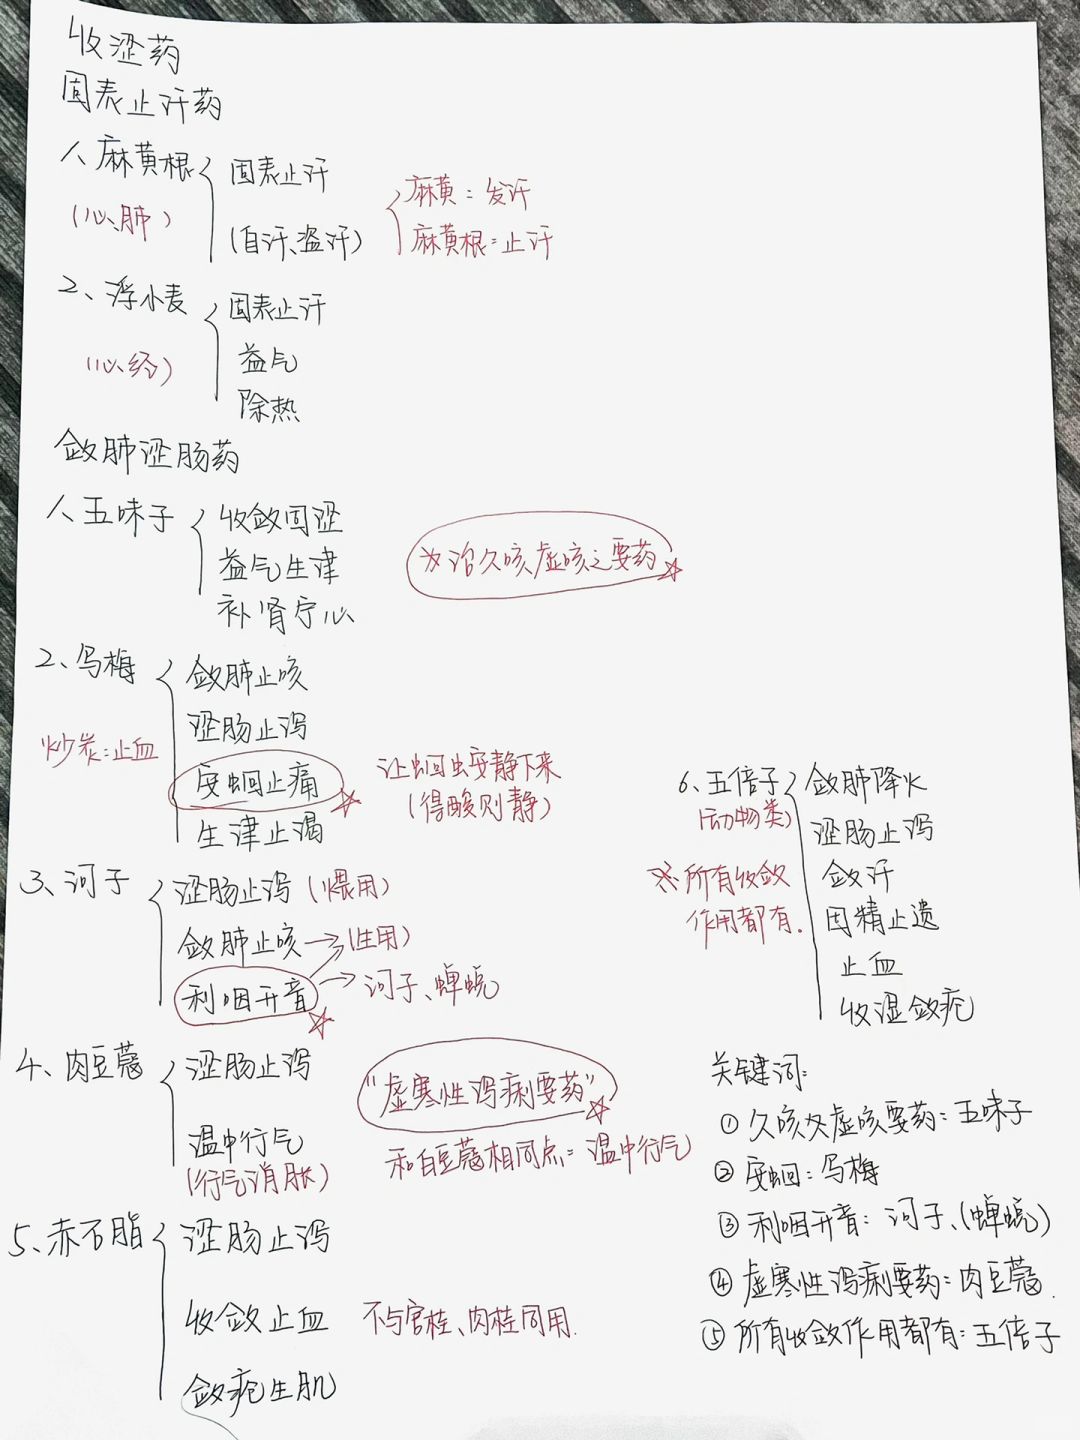 收涩药
固表止汗药
1、麻黄根 固表止汗
(心、肺) (自汗、盗汗)
麻黄：发汗
麻黄根：止汗
2、浮小麦 固表止汗
(心经) 益气
除热
敛肺涩肠药
1、五味子 收敛固涩
益气生津
补肾宁心
※治久咳虚咳之要药☆
2、乌梅 敛肺止咳
涩肠止泻
炒炭：止血
安蛔止痛☆
生津止渴
让蛔虫安静下来
(得酸则静)
3、诃子 涩肠止泻(煨用)
敛肺止咳→(生用)
利咽开音☆→诃子、蝉蜕
4、肉豆蔻 涩肠止泻
温中行气
(行气消胀)
"虚寒性泻痢要药"☆
和白豆蔻相同点：温中行气
5、赤石脂 涩肠止泻
收敛止血 不与官桂、肉桂同用.
敛疮生肌
6、五倍子 敛肺降火
(动物类) 涩肠止泻
※所有收敛 敛汗
作用都有. 固精止遗
止血
收湿敛疮
关键词：
① 久咳及虚咳要药：五味子
② 安蛔：乌梅
③ 利咽开音：诃子、(蝉蜕)
④ 虚寒性泻痢要药：肉豆蔻.
⑤ 所有收敛作用都有：五倍子